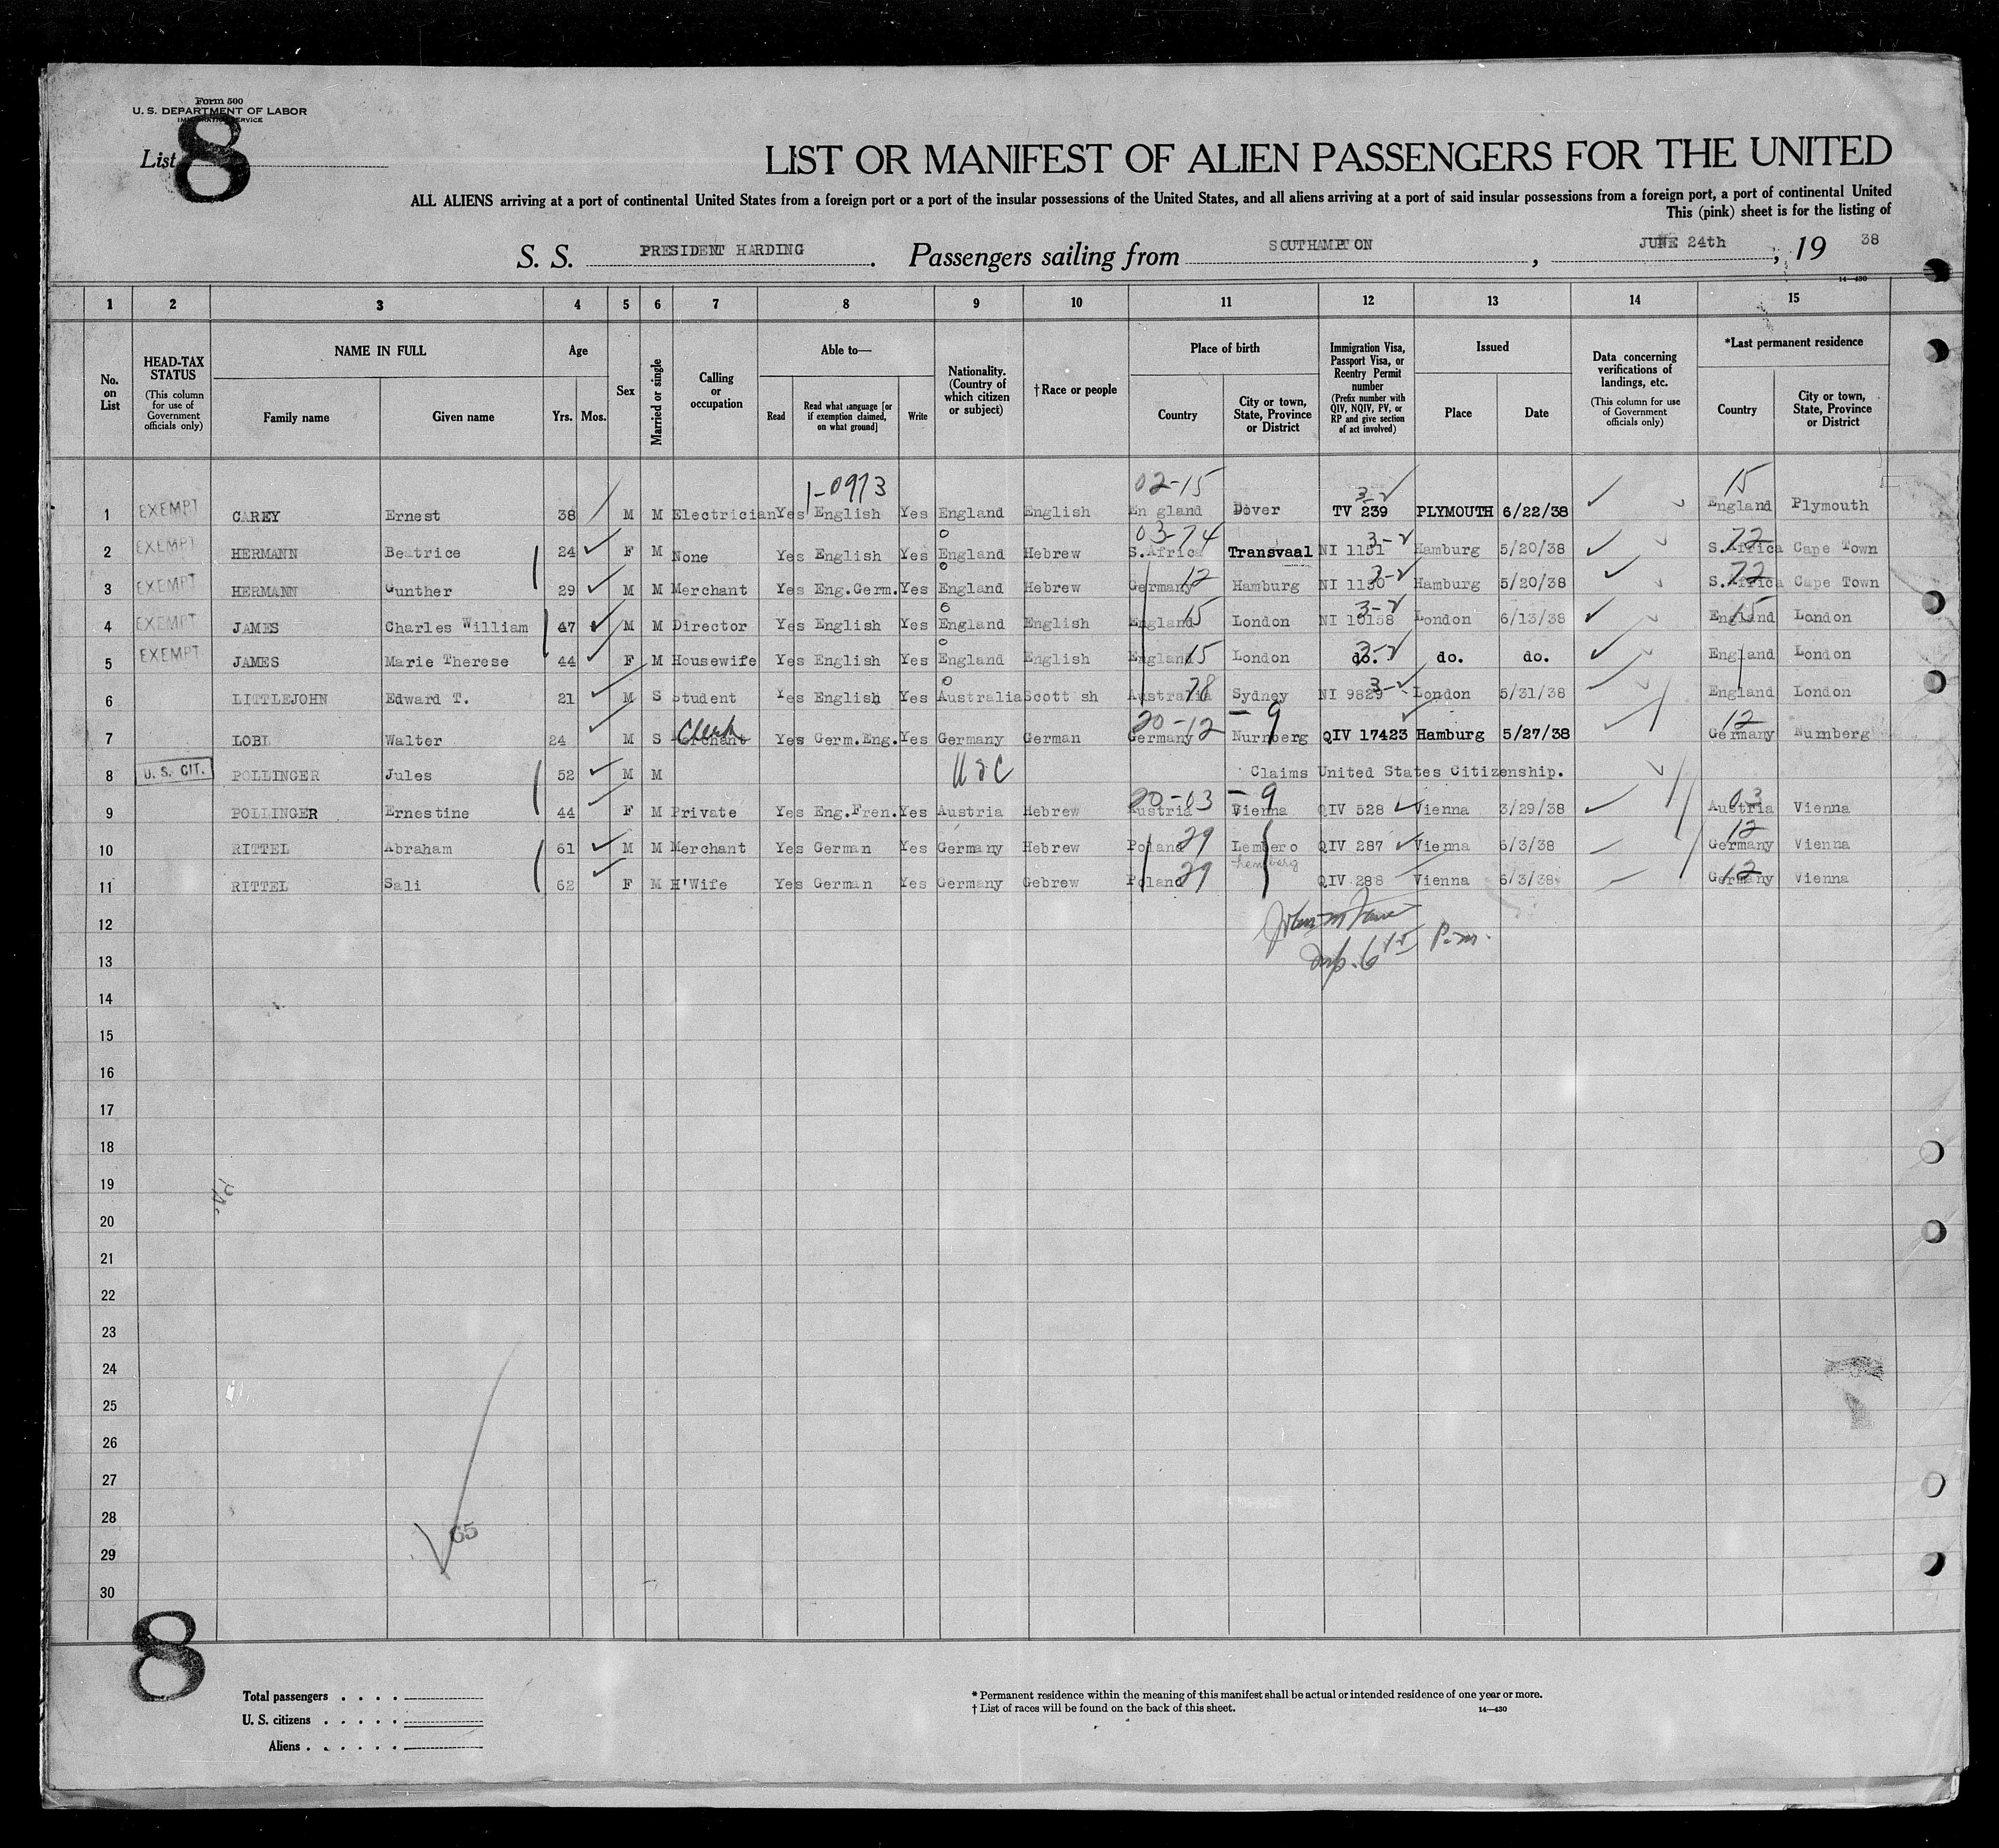 Form 500
U. S. DEPARTMENT OF LABOR
IMMIGRATION SERVICE
List 8
LIST OR MANIFEST OF ALIEN PASSENGERS FOR THE UNITED
ALL ALIENS arriving at a port of continental United States from a foreign port or a port of the insular possessions of the United States, and all aliens arriving at a port of said insular possessions from a foreign port, a port of continental United
This (pink) sheet is for the listing of
S. S. PRESIDENT HARDING. Passengers sailing from SOUTHAMPTON, JUNE 24th, 19 38
14—430
1 2 3 4 5 6 7 8 9 10 11 12 13 14 15
No. on List
HEAD-TAX STATUS (This column for use of Government officials only)
NAME IN FULL
Family name
Given name
Age
Yrs. Mos.
Sex
Married or single
Calling or occupation
Able to—
Read
Read what language [or if exemption claimed, on what ground]
Write
Nationality. (Country of which citizen or subject)
†Race or people
Place of birth
Country
City or town, State, Province or District
Immigration Visa, Passport Visa, or Reentry Permit number (Prefix number with QIV, NQIV, PV, or RP and give section of act involved)
Issued
Place
Date
Data concerning verifications of landings, etc. (This column for use of Government officials only)
*Last permanent residence
Country
City or town, State, Province or District
1-0973 02-15 3-2 15
1 EXEMPT CAREY Ernest 38 M M Electrician Yes English Yes England English En gland Dover TV 239 PLYMOUTH 6/22/38 England Plymouth
03-74 3-2 72
2 EXEMPT HERMANN Beatrice 24 F M None Yes English Yes England Hebrew S.Africa Transvaal NI 1151 Hamburg 5/20/38 S.Africa Cape Town
12 3-2 72
3 EXEMPT HERMANN Gunther 29 M M Merchant Yes Eng.Germ. Yes England Hebrew Germany Hamburg NI 1150 Hamburg 5/20/38 S.Africa Cape Town
15 3-2 15
4 EXEMPT JAMES Charles William 47 M M Director Yes English Yes England English England London NI 10158 London 6/13/38 England London
15 3-2
5 EXEMPT JAMES Marie Therese 44 F M Housewife Yes English Yes England English England London do. do. do. England London
78 3-2
6 LITTLEJOHN Edward T. 21 M S Student Yes English Yes Australia Scott sh Australia Sydney NI 9829 London 5/31/38 England London
Clerk 20-12 - 9 12
7 LOBL Walter 24 M S Merchant Yes Germ.Eng. Yes Germany German Germany Nurnberg QIV 17423 Hamburg 5/27/38 Germany Nurnberg
8 U. S. CIT. POLLINGER Jules 52 M M USC Claims United States Citizenship.
20-03 - 9 03
9 POLLINGER Ernestine 44 F M Private Yes Eng.Fren. Yes Austria Hebrew Austria Vienna QIV 528 Vienna 3/29/38 Austria Vienna
29 12
10 RITTEL Abraham 61 M M Merchant Yes German Yes Germany Hebrew Poland Lembero QIV 287 Vienna 6/3/38 Germany Vienna
29 12
11 RITTEL Sali 62 F M H'Wife Yes German Yes Germany Gebrew Poland QIV 288 Vienna 6/3/38 Germany Vienna
12
13
6 15 P.m.
14
15
16
17
18
19
20
21
22
23
24
25
26
27
28
65
29
30
8
Total passengers . . . .
U. S. citizens . . . . .
Aliens . . . . . .
* Permanent residence within the meaning of this manifest shall be actual or intended residence of one year or more.
† List of races will be found on the back of this sheet.
14—430